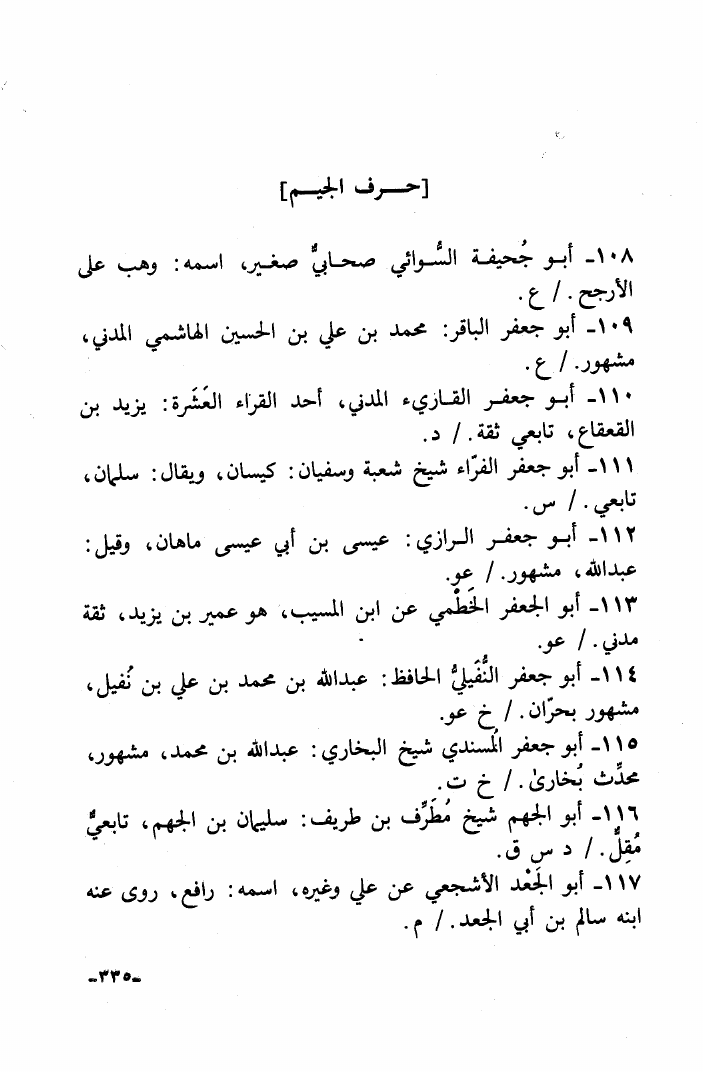 [حـــرف الجيـــم]
١٠٨ـ أبـو جُحيفـة السُّـوائي صحـابيٌّ صغـير، اسمه: وهب على
الأرجح. / ع.
١٠٩ـ أبو جعفر الباقر: محمد بن علي بن الحسين الهاشمي المدني،
مشهور. / ع.
١١٠ـ أبـو جعفـر القـاريء المدني، أحد القراء العَشَرة: يزيد بن
القعقاع، تابعي ثقة. / د.
١١١ـ أبو جعفر الفرّاء شيخ شعبة وسفيان: كيسان، ويقال: سلمان،
تابعي. / س.
١١٢ـ أبـو جعفـر الـرازي: عيسى بن أبي عيسى ماهان، وقيل:
عبدالله، مشهور. / عو.
١١٣ـ أبو الجعفر الخَطْمي عن ابن المسيب، هو عمير بن يزيد، ثقة
مدني. / عو.
١١٤ـ أبو جعفر النُّفَيليُّ الحافظ: عبدالله بن محمد بن علي بن نُفيل،
مشهور بحرّان. / خ عو.
١١٥ـ أبو جعفر المُسندي شيخ البخاري: عبدالله بن محمد، مشهور،
محدِّث بُخارىٰ. / خ ت.
١١٦ـ أبو الجهم شيخ مُطَرِّف بن طريف: سليمان بن الجهم، تابعيٌّ
مُقِلٌّ. / د س ق.
١١٧ـ أبو الجَعْد الأشجعي عن علي وغيره، اسمه: رافع، روى عنه
ابنه سالم بن أبي الجعد. / م.
ـ٣٣٥ـ